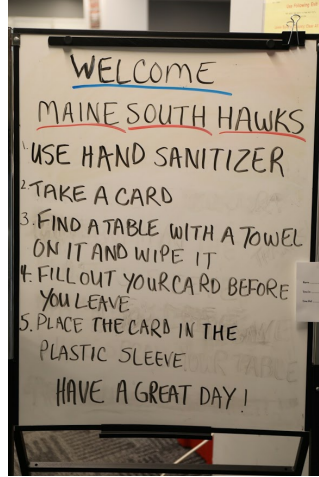 WELCOME
MAINE SOUTH HAWKS
1. USE HAND SANITIZER
2. TAKE A CARD
3. FIND A TABLE WITH A TOWEL
ON IT AND WIPE IT
4. FILL OUT YOUR CARD BEFORE
YOU LEAVE
5. PLACE THE CARD IN THE
PLASTIC SLEEVE
HAVE A GREAT DAY!